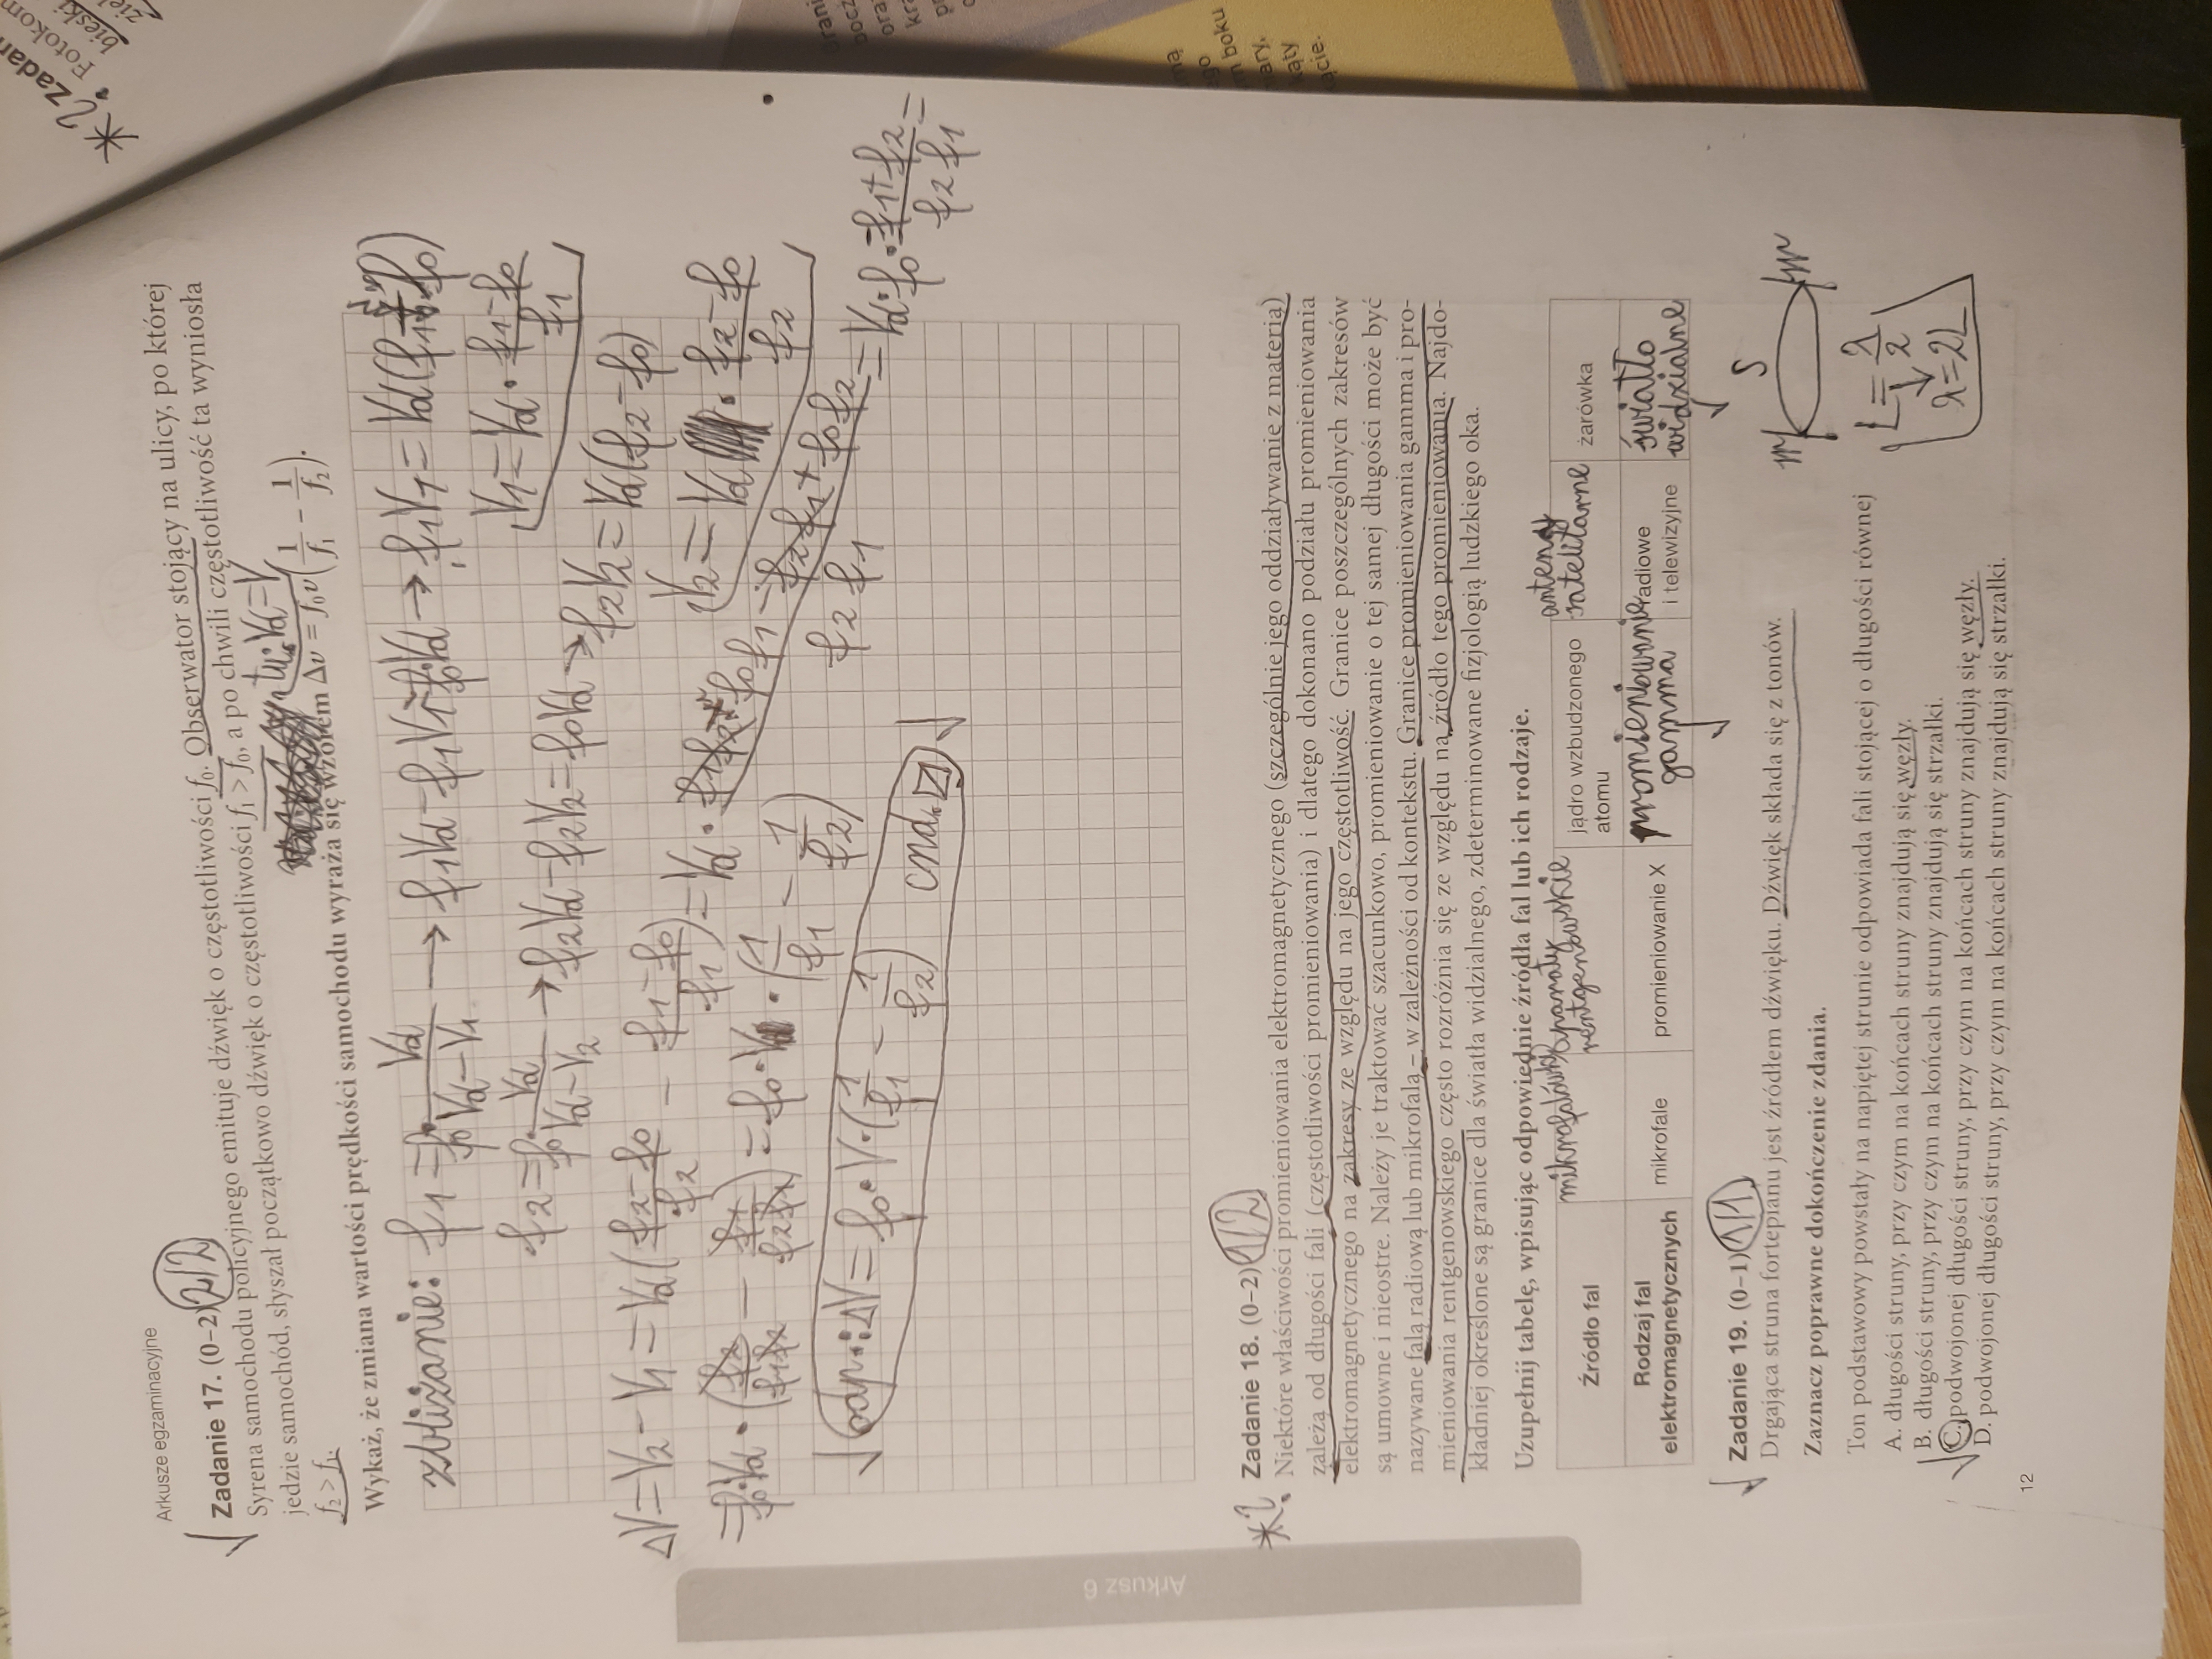 Arkusze egzaminacyjne
Zadanie 17. (0–2) 2/2
Syrena samochodu policyjnego emituje dźwięk o częstotliwości f₀. Obserwator stojący na ulicy, po której
jedzie samochód, słyszał początkowo dźwięk o częstotliwości f₁ > f₀, a po chwili częstotliwość ta wyniosła
f₂ > f₁. tu: Vd = V
Wykaż, że zmiana wartości prędkości samochodu wyraża się wzorem Δv = f₀v(1/f₁ − 1/f₂).
zbliżanie: f₁ = f₀ · Vd/(Vd − V₁) → f₁Vd − f₁V₁ = f₀Vd → f₁V₁ = Vd(f₁ − f₀)
V₁ = Vd · (f₁ − f₀)/f₁
f₂ = f₀ · Vd/(Vd − V₂) → f₂Vd − f₂V₂ = f₀Vd → f₂V₂ = Vd(f₂ − f₀)
V₂ = Vd · (f₂ − f₀)/f₂
ΔV = V₂ − V₁ = Vd((f₂ − f₀)/f₂ − (f₁ − f₀)/f₁) = Vd · (f₁f₂ − f₀f₁ − f₂f₁ + f₀f₂)/(f₂f₁) = Vd · f₀ · (−f₁ + f₂)/(f₂f₁) =
= f₀ · Vd · (f₂/(f₁f₂) − f₁/(f₂f₁)) = f₀ · Vd · (1/f₁ − 1/f₂)
odp.: ΔV = f₀ · V · (1/f₁ − 1/f₂) cnd.
Arkusz 6
Zadanie 18. (0–2) 1/2
Niektóre właściwości promieniowania elektromagnetycznego (szczególnie jego oddziaływanie z materią)
zależą od długości fali (częstotliwości promieniowania) i dlatego dokonano podziału promieniowania
elektromagnetycznego na zakresy ze względu na jego częstotliwość. Granice poszczególnych zakresów
są umowne i nieostre. Należy je traktować szacunkowo, promieniowanie o tej samej długości może być
nazywane falą radiową lub mikrofalą – w zależności od kontekstu. Granice promieniowania gamma i pro-
mieniowania rentgenowskiego często rozróżnia się ze względu na źródło tego promieniowania. Najdo-
kładniej określone są granice dla światła widzialnego, zdeterminowane fizjologią ludzkiego oka.
Uzupełnij tabelę, wpisując odpowiednie źródła fal lub ich rodzaje.
Źródło fal mikrofalówki aparaty rentgenowskie jądro wzbudzonego atomu anteny satelitarne żarówka
Rodzaj fal elektromagnetycznych mikrofale promieniowanie X promieniowanie gamma radiowe i telewizyjne światło widzialne
Zadanie 19. (0–1) 1/1
Drgająca struna fortepianu jest źródłem dźwięku. Dźwięk składa się z tonów.
Zaznacz poprawne dokończenie zdania.
Ton podstawowy powstały na napiętej strunie odpowiada fali stojącej o długości równej
A. długości struny, przy czym na końcach struny znajdują się węzły.
B. długości struny, przy czym na końcach struny znajdują się strzałki.
C. podwojonej długości struny, przy czym na końcach struny znajdują się węzły.
D. podwojonej długości struny, przy czym na końcach struny znajdują się strzałki.
S
L = λ/2
λ = 2L
12